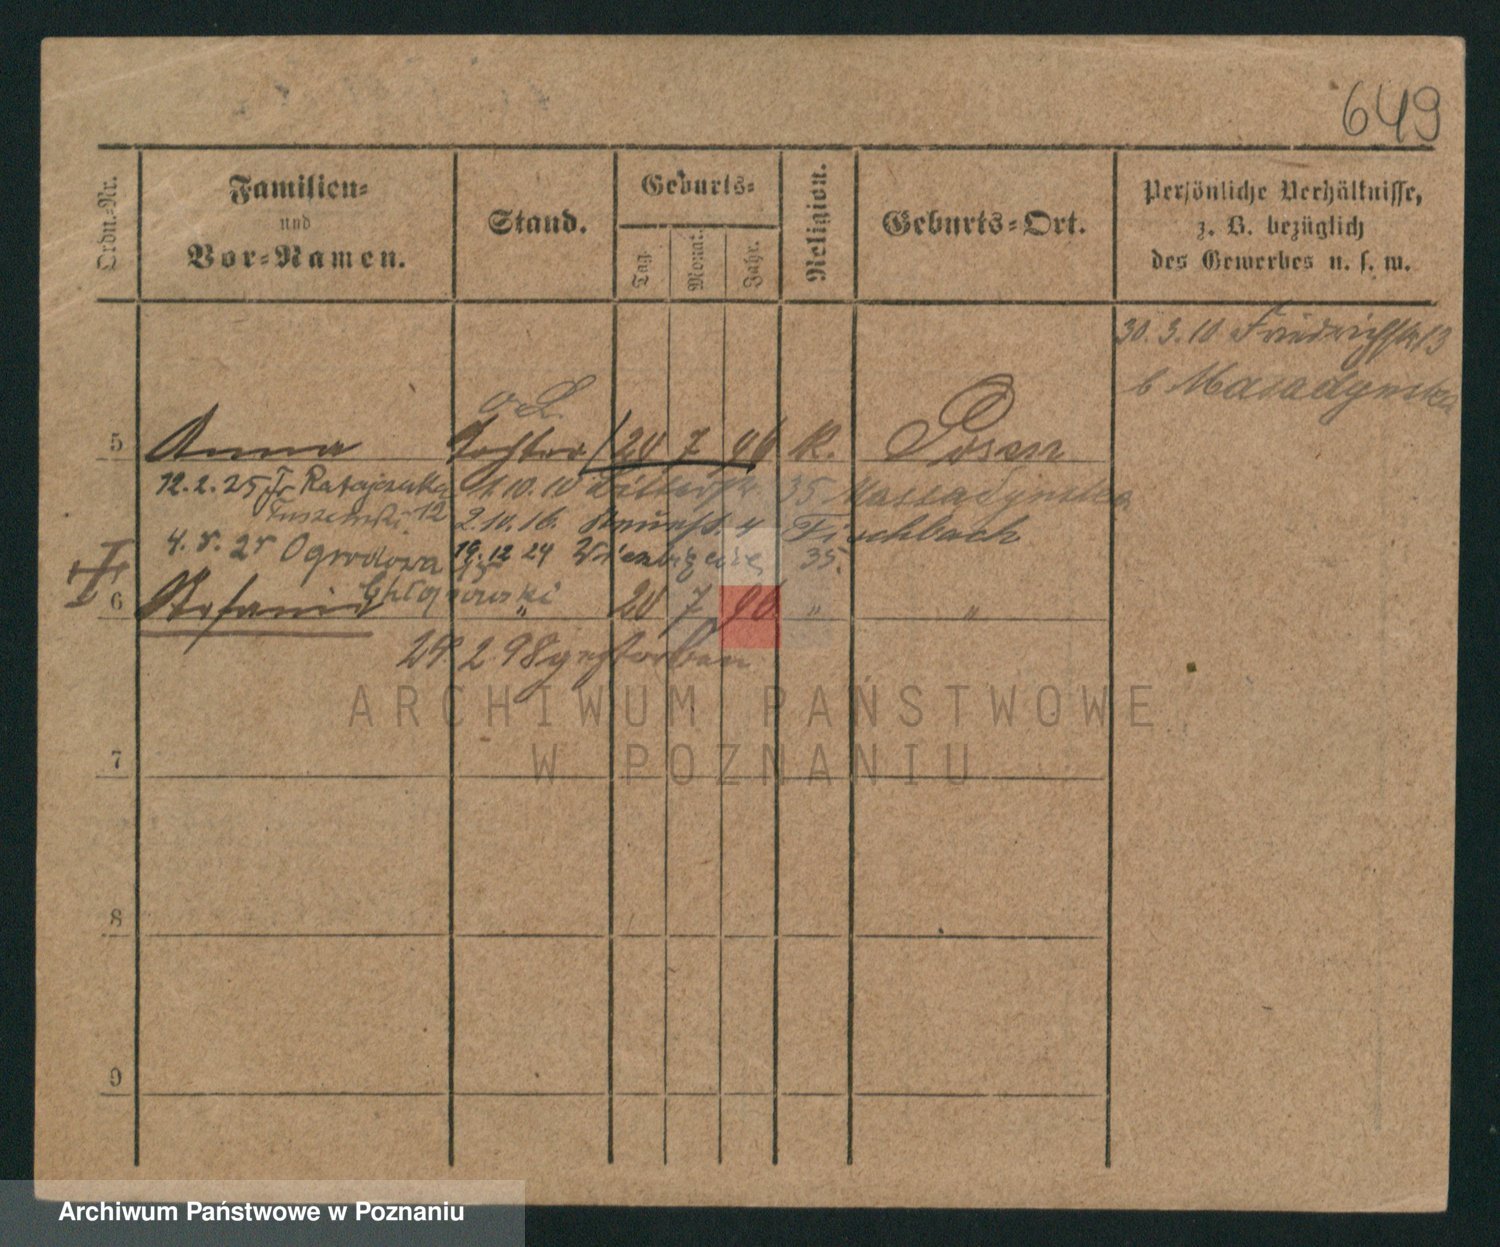 649
Ordn.-Nr.
Familien-
und
Vor-Namen.
Stand.
Geburts-
Tag.
Monat.
Jahr.
Religion.
Geburts-Ort.
Persönliche Verhältnisse,
z. B. bezüglich
des Gewerbes u. s. w.
30. 3. 10 Friedrichstr 13
b
5 Anna Tochter 20 7 96 K. Posen
12. 2. 25 Fr Ratajczaka 1. 10. 10 35
12 2. 10. 16. 4 Fischbach
4. 5. 25 Ogrodowa 19. 12 24 35.
6 Stefania " 20 7 96 " "
29. 2 98 gestorben
ARCHIWUM PAŃSTWOWE
W POZNANIU
7
8
9
Archiwum Państwowe w Poznaniu